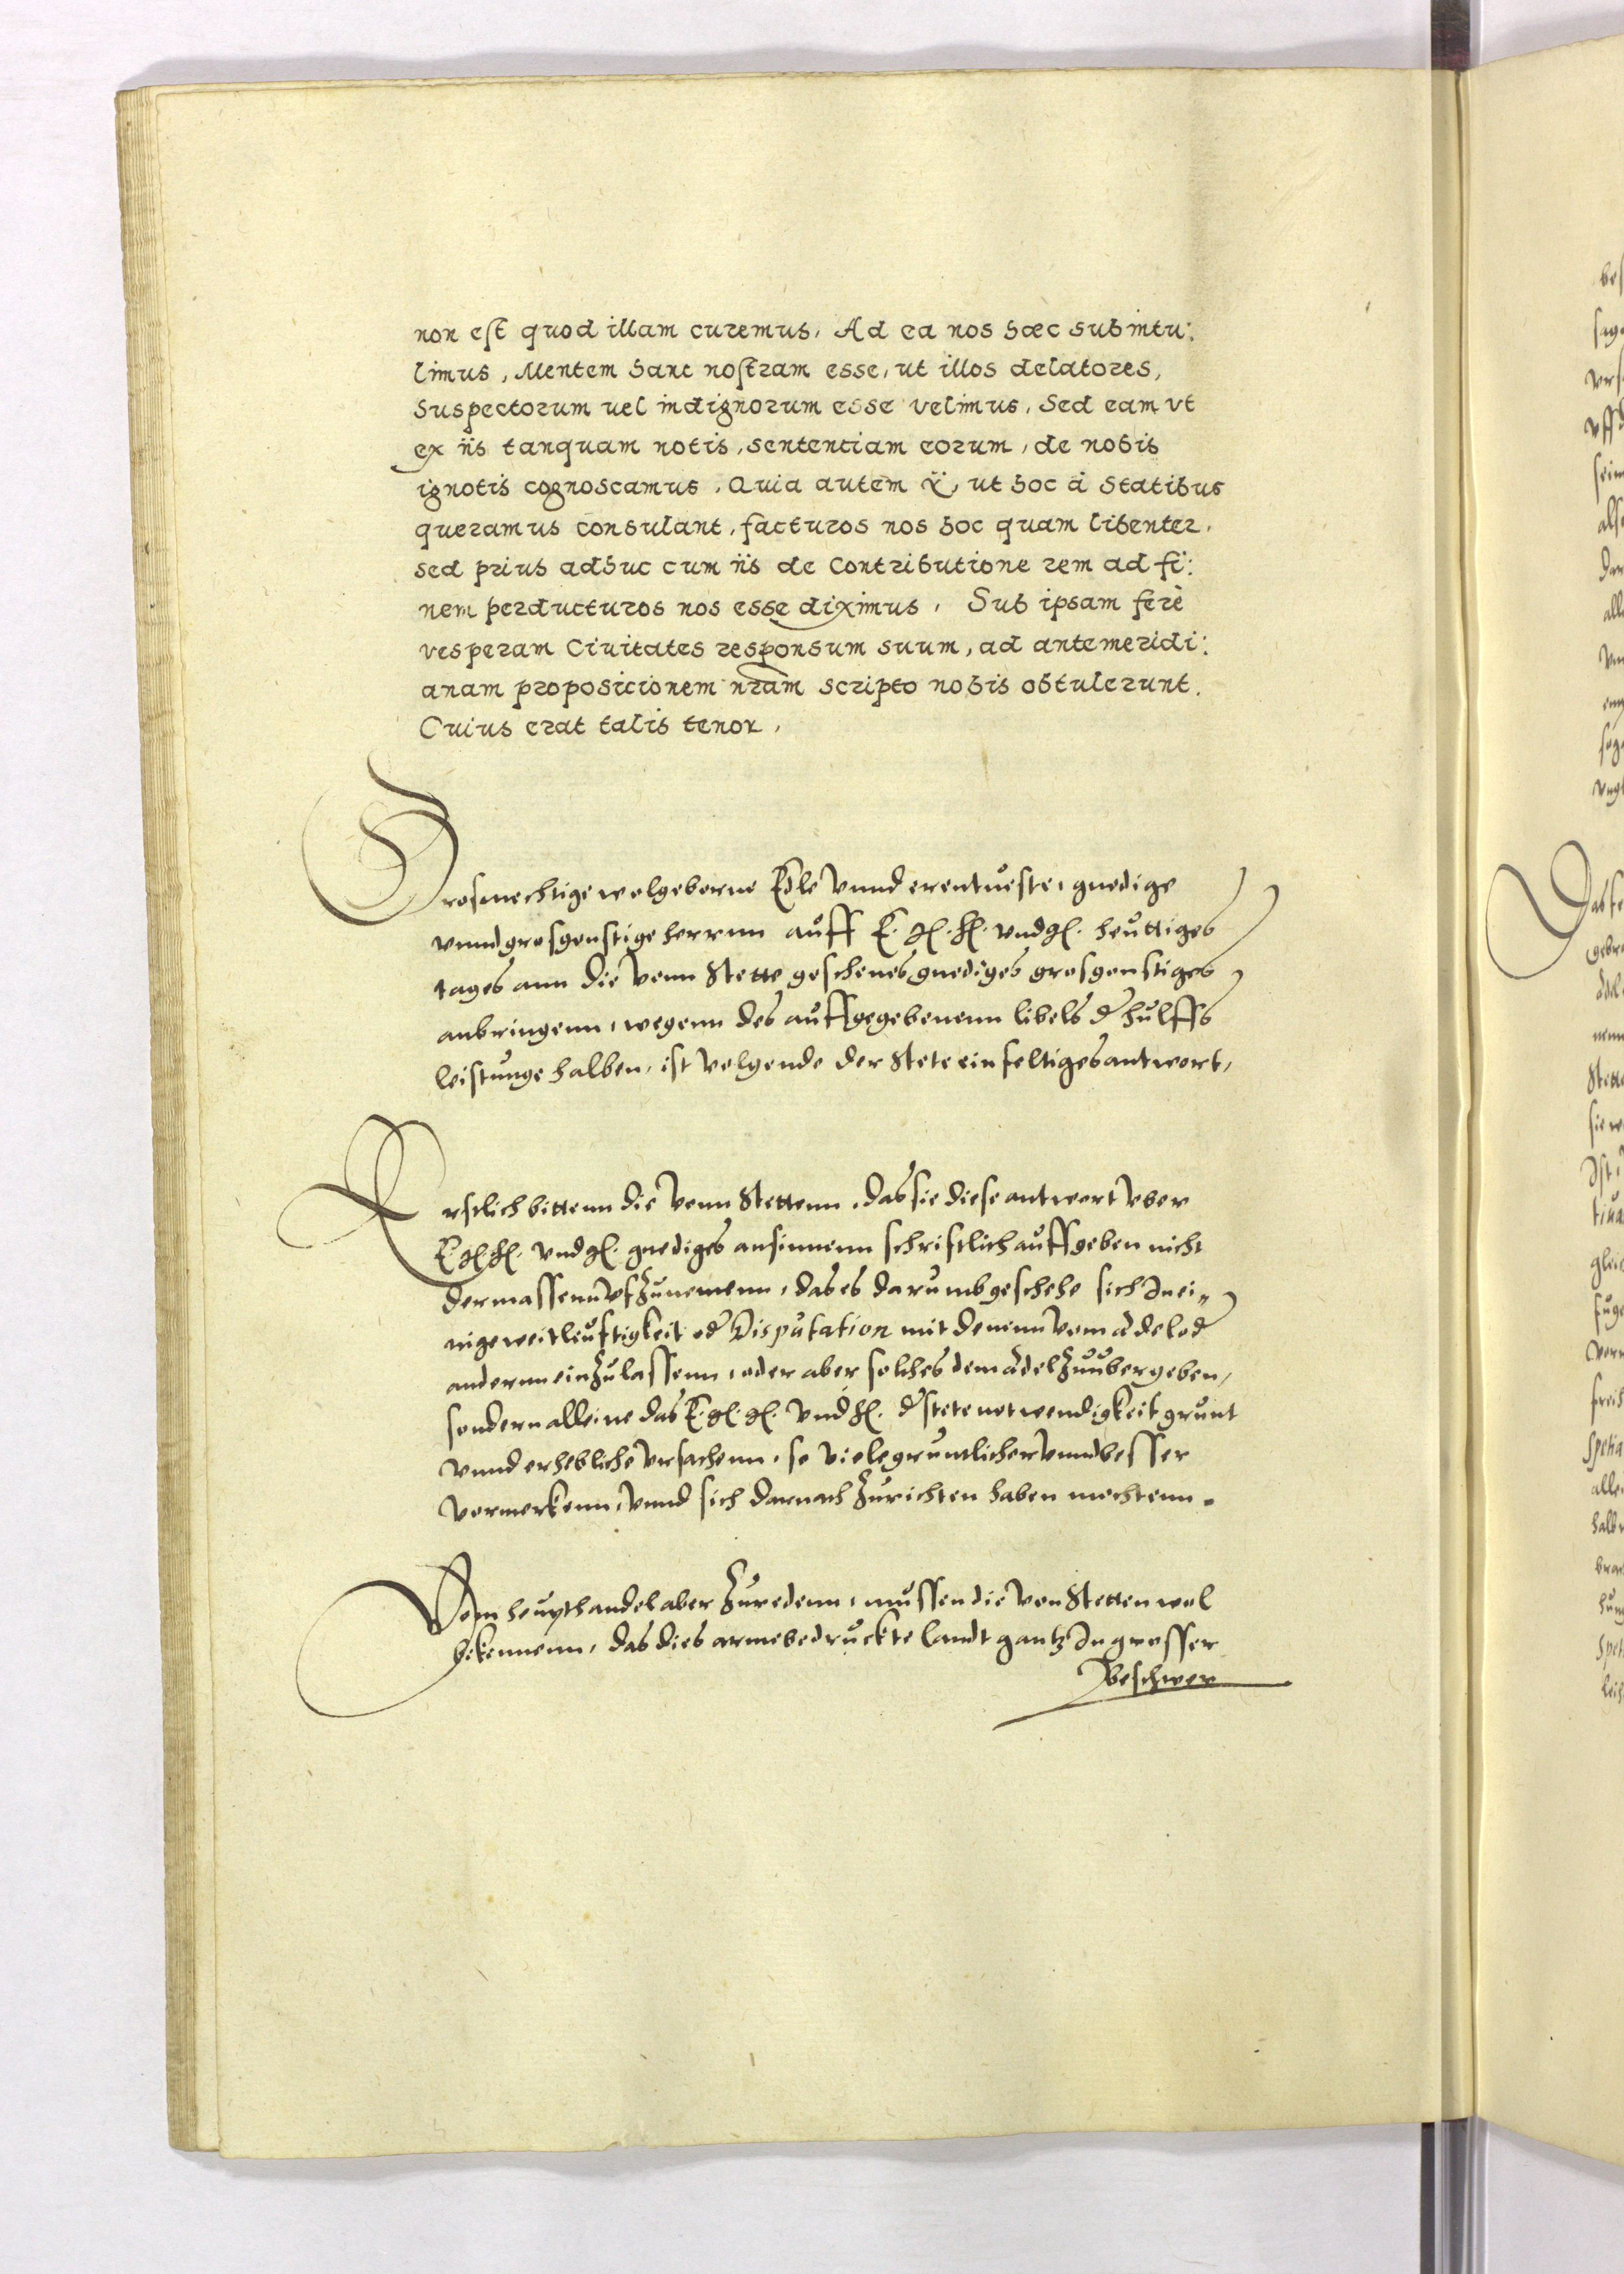 non est quod illam curemus, Ad ea nos hæc subintu:
limus, Mentem hanc nostram esse, ut illos delatores,
suspectorum uel indignorum esse velimus, Sed eam vt
ex iis tanquam notis, sententiam eorum, de nobis
ignotis cognoscamus. Quia autem ut hoc à Statibus
queramus consulant, facturos nos hoc quam libenter,
sed prius adhuc cum iis de Contributione rem ad fi:
nem perducturos nos esse diximus, Sub ipsam ferè
vesperam Ciuitates responsum suum, ad antemeridi:
anam proposicionem nram scripto nobis obtulerunt.
Cuius erat talis tenor,
Grosmechtige wolgeborne Edle vnnd erentueste, gnedige
vnnd grosgonstige herrnn auff E. G. H. vnd G. heuttiges
tages ann die vonn Stette geschenes gnediges grosgonstiges
anbringenn, wegenn des auffgegebenenn libels d hulffs
leistunge halben, ist volgende der Stete einfeltiges antwort,
Erstlich bittenn die vonn Stettenn, das sie diese antwort vber
E. G. H. vnd G. gnediges ansinnenn schrifftlich auffgeben nicht
dermassenn vfzunemenn, das es darumb geschehe sich In ei„
nige weitleuftigkeit od Disputation mit denenn vom adel od
andernn einzulassenn, oder aber solches dem adel zuubergeben,
sondern alleine das E. G. G. vnd H. d stete notwendigkeit grunt
vnnd erhebliche vrsachenn, so viele gruntlicher vnnd besser
vormerkenn, vnnd sich darnach zurichten haben mochtenn.
Vom heupthandel aber zuredenn, mussen die von Stetten wol
bekennenn, das dies arme bedruckte landt gantz In grosser
Beschwer